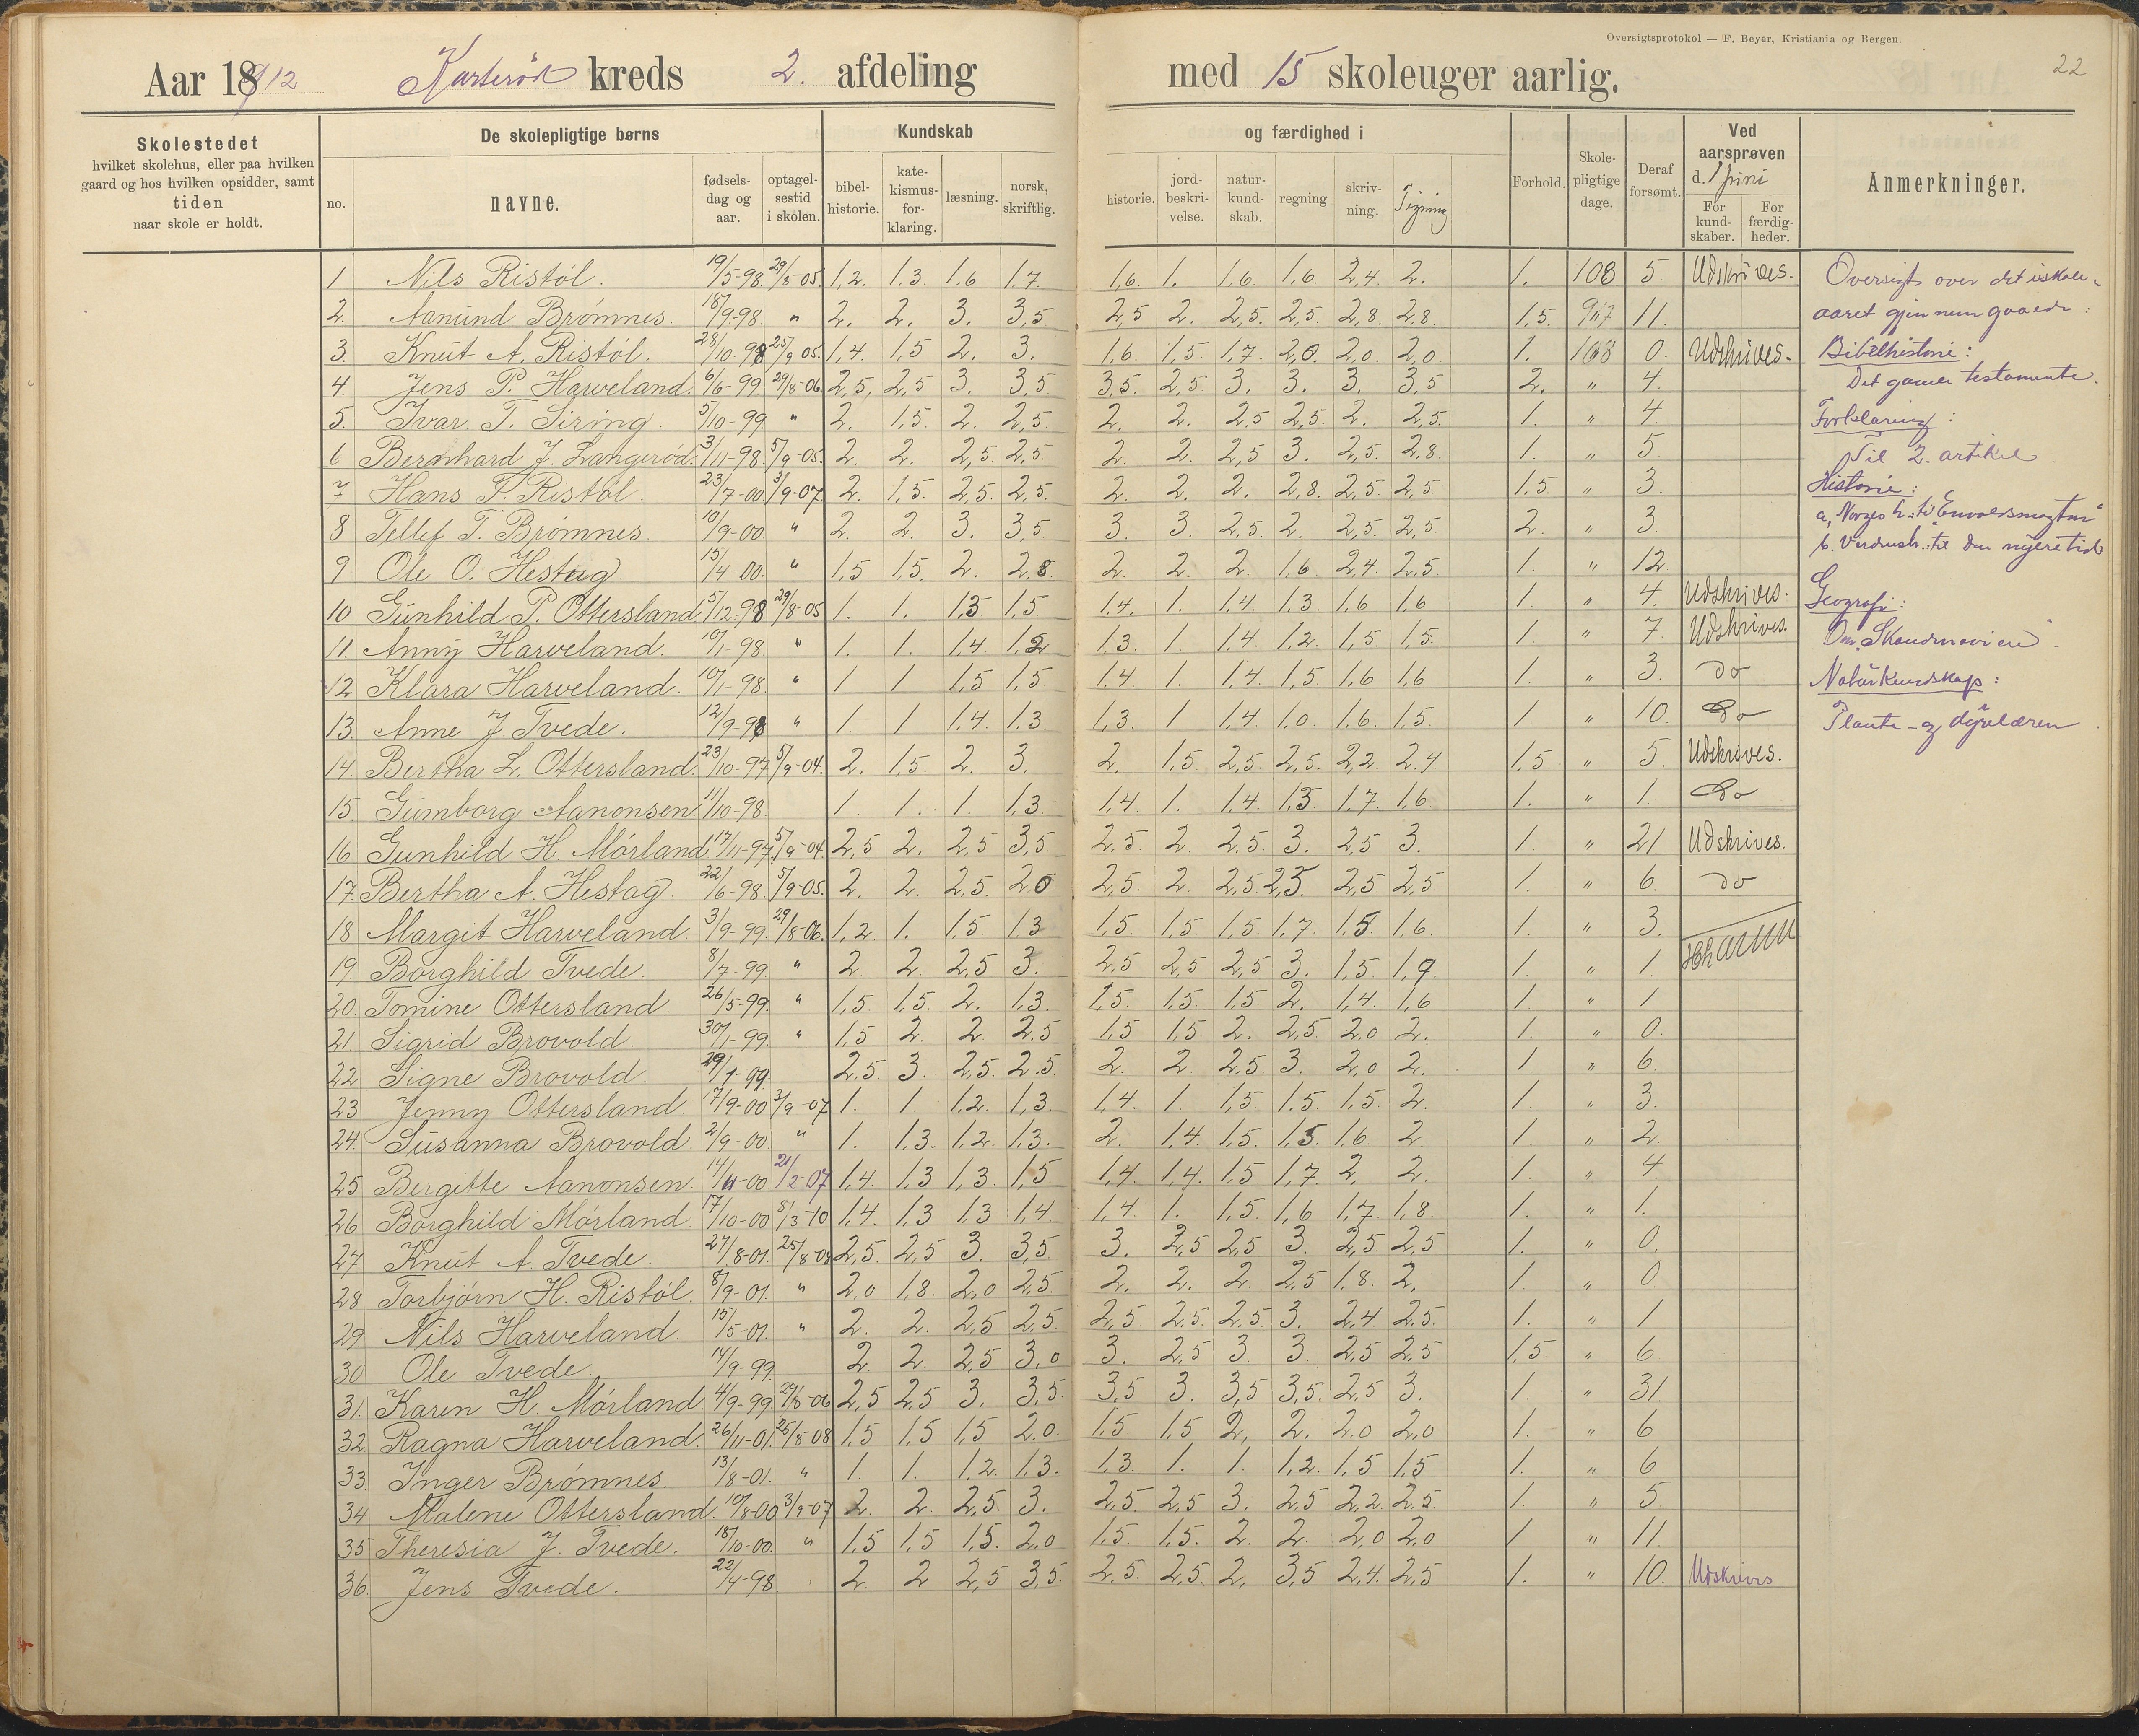 Oversigtsprotokol — F. Beyer, Kristiania og Bergen.
22
Aar 1912 kreds 2. afdeling med 15 skoleuger aarlig.
Skolestedet
hvilket skolehus, eller paa hvilken
gaard og hos hvilken opsidder, samt
tiden
naar skole er holdt.
De skolepligtige børns
no. navne. fødsels-dag og aar. optagel-sestid i skolen.
Kundskab og færdighed i
bibel-historie. kate-kismus-for-klaring. læsning. norsk, skriftlig. historie. jord-beskri-velse. natur-kund-skab. regning skriv-ning. Tegning
Forhold. Skole-pligtige dage. Deraf forsømt.
Ved aarsprøven d. 1 juni
For kund-skaber. For færdig-heder.
Anmerkninger.
1 Nils Ristöl. 19/5-98 29/8-05 1,2. 1,3. 1,6 1,7. 1,6. 1. 1,6 1,6. 2,4 2. 1. 108 5. Udskrives.
2. Aanund Brömnes. 18/9-98. " 2. 2. 3. 3,5 2,5 2. 2,5. 2,5. 2,8. 2,8. 1,5. 11.
3. Knut A. Ristöl. 28/10-98 25/9 05. 1,4. 1,5 2. 3. 1,6. 1,5 1,7. 2,0. 2,0. 2,0. 1. 108 0. Udskrives.
4. Jens P. Harveland. 6/6-99. 29/8-06 2,5, 2,5 3. 3,5 3,5. 2,5. 3. 3. 3. 3,5 2. " 4.
5. Ivar. T. Siring. 5/10-99 " 2. 1,5. 2. 2,5. 2. 2. 2,5 2,5. 2. 2,5. 1. " 4.
6 Bernhard J. Langeröd. 3/11-98. 5/9-05. 2. 2. 2,5. 2,5. 2. 2. 2,5 3. 2,5. 2,8. 1. " 5.
7 Hans T. Ristöl. 23/7-00. 3/9-07. 2. 1,5. 2,5. 2,5. 2. 2. 2. 2,8. 2,5. 2,5 1,5. " 3.
8 Tellef T. Brömnes. 10/9-00. " 2. 2. 3. 3,5. 3. 3. 2,5. 2. 2,5. 2,5. 2. " 3.
9 Ole O. Hestag. 15/4-00. " 1,5 1,5. 2. 2,8. 2. 2. 2. 1,6. 2,4. 2,5. 1. " 12
10 Gunhild P. Ottersland 5/12-98 29/8-05 1. 1. 1,5 1,5 1,4. 1. 1,4. 1,3 1,6 1,6 1. " 4. Udskrives.
11. Anny Harveland. 10/1-98. " 1. 1. 1,4. 1,2 1,3. 1 1,4. 1,2. 1,5. 1,5. 1. " 7. Udskrives.
12 Klara Harveland. 10/1-98. " 1 1 1,5 1,5. 1,4 1. 1,4 1,5. 1,6 1,6 1. " 3. do
13. Anne J. Tvede. 12/9-98 " 1. 1 1,4. 1,3. 1,3. 1 1,4 1,0. 1,6. 1,5. 1. " 10. Do
14. Bertha L. Ottersland. 23/10-97 5/9-04. 2. 1,5. 2. 3. 2. 1,5. 2,5. 2,5. 2,2. 2,4 1,5. " 5. Udskrives.
15. Gumborg Aanonsen 11/10-98. 1. 1. 1. 1,3 1,4 1. 1,4. 1,3. 1,7. 1,6. 1. " 1. Do
16 Gunhild H. Mörland 17/11-97. 5/9-04. 2,5 2. 2,5 3,5. 2,5. 2. 2,5. 3. 2,5 3. 1. " 21 Udskrives.
17. Bertha A. Hestag. 22/6-98. 5/9-05. 2. 2. 2,5. 2,0 2,5. 2. 2,5. 2,5. 2,5 2,5 1. " 6. do
18 Margit Harveland. 3/9-99. 29/8-06. 1,2. 1. 1,5. 1,3 1,5. 1,5 1,5 1,7. 1,5. 1,6. 1. " 3.
19. Borghild Tvede. 8/7-99. " 2. 2. 2,5 3. 2,5 2,5 2,5 3. 1,5. 1,9. 1. " 1.
20. Tomine Ottersland. 26/5-99. " 1,5. 1,5. 2. 1,3. 1,5. 1,5. 1,5 2. 1,4. 1,6 1. " 1
21. Sigrid Brovold. 30/1-99. " 1,5 2. 2 2,5. 1,5 1,5 2. 2,5 2,0 2. 1. " 0.
22 Signe Brovold. 29/1-99. 2,5. 3. 2,5. 2,5 2. 2. 2,5. 3. 2,0 2. 1. " 6.
23 Jenny Ottersland. 7/9-00 3/9-07 1. 1. 1,2. 1,3. 1,4. 1. 1,5 1,5. 1,5. 2. 1. " 3.
24. Susanna Brovold. 2/9-00 " 1. 1,3. 1,2. 1,3. 2. 1,4. 1,5. 1,5. 1,6. 2. 1. " 2.
25 Bergitte Aanonsen. 14/11-00. 21/2-07 1,4. 1,3 1,3. 1,5. 1,4. 1,4. 1,5 1,7. 2, 2. 1. " 4.
26 Borghild Mörland. 17/10-00 8/3-10 1,4. 1,3 1,3 1,4 1,4. 1. 1,5. 1,6 1,7. 1,8. 1. " 1.
27. Knut A. Tvede. 27/8-01. 25/8-08 2,5. 2,5 3. 3,5. 3. 2,5 2,5 3. 2,5. 2,5 1. " 0.
28 Torbjörn H. Ristöl. 8/9-01. " 2,0 1,8. 2,0 2,5. 2. 2. 2. 2,5 1,8. 2. 1. " 0.
29. Nils Harveland. 15/5-01. " 2. 2. 2,5 2,5 2,5 2,5. 2,5. 3. 2,4. 2,5. 1. " 1
30 Ole Tvede. 14/9-99. 2 2. 2,5 3,0 3. 2,5 3. 3. 2,5 2,5 1,5. " 6
31. Karen H. Mörland. 4/9-99. 29/8-06 2,5 2,5 3. 3,5. 3,5 3. 3,5 3,5. 2,5 3. 1. " 31
32. Ragna Harveland. 26/11-01. 25/8-08 1,5 1,5 1,5 2,0. 1,5. 1,5 2, 2. 2,0 2,0 1. " 6
33. Inger Brömnes. 13/8-01. " 1. 1. 1,2. 1,3. 1,3 1. 1. 1,2. 1,5 1,5 1. " 6
34 Malene Ottersland. 10/8-00 3/9-07 2. 2. 2,5. 3. 2,5. 2,5 3. 2,5 2,2. 2,5. 1. " 5.
35 Theresia J. Tvede. 18/10-00. " 1,5 1,5 1,5. 2,0 1,5. 1,5. 2. 2. 2,0 2,0 1 " 11.
36. Jens Tvede. 22/4-98 2. 2 2,5 3,5. 2,5. 2,5. 2, 3,5 2,4. 2,5 1. " 10. Udskrives
Oversigt over det i skole-
aaret gjennemgaaede:
Bibelhistorie:
Det gamle testamente.
Forklaring:
Til 2. artikel.
Historie:
a, Norges h.: til Enevoldsmagten"
b. Verdensh.: til den nyere tid
Geografi:
Om Skandinavien".
Naturkundskap:
Plante- og dyrelæren.